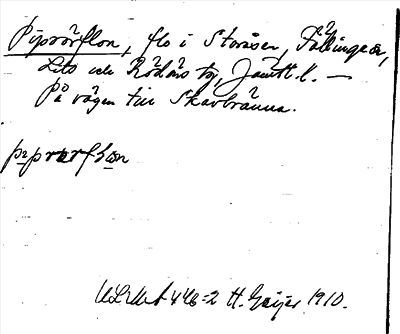 Pipvörflon, flo i Storåsen, Föllinge sn,
Lits och Rödöns tg, Jämtl. l. —
På vägen till Skarbränna.
ULMA 446:2 H. Geijer 1910.